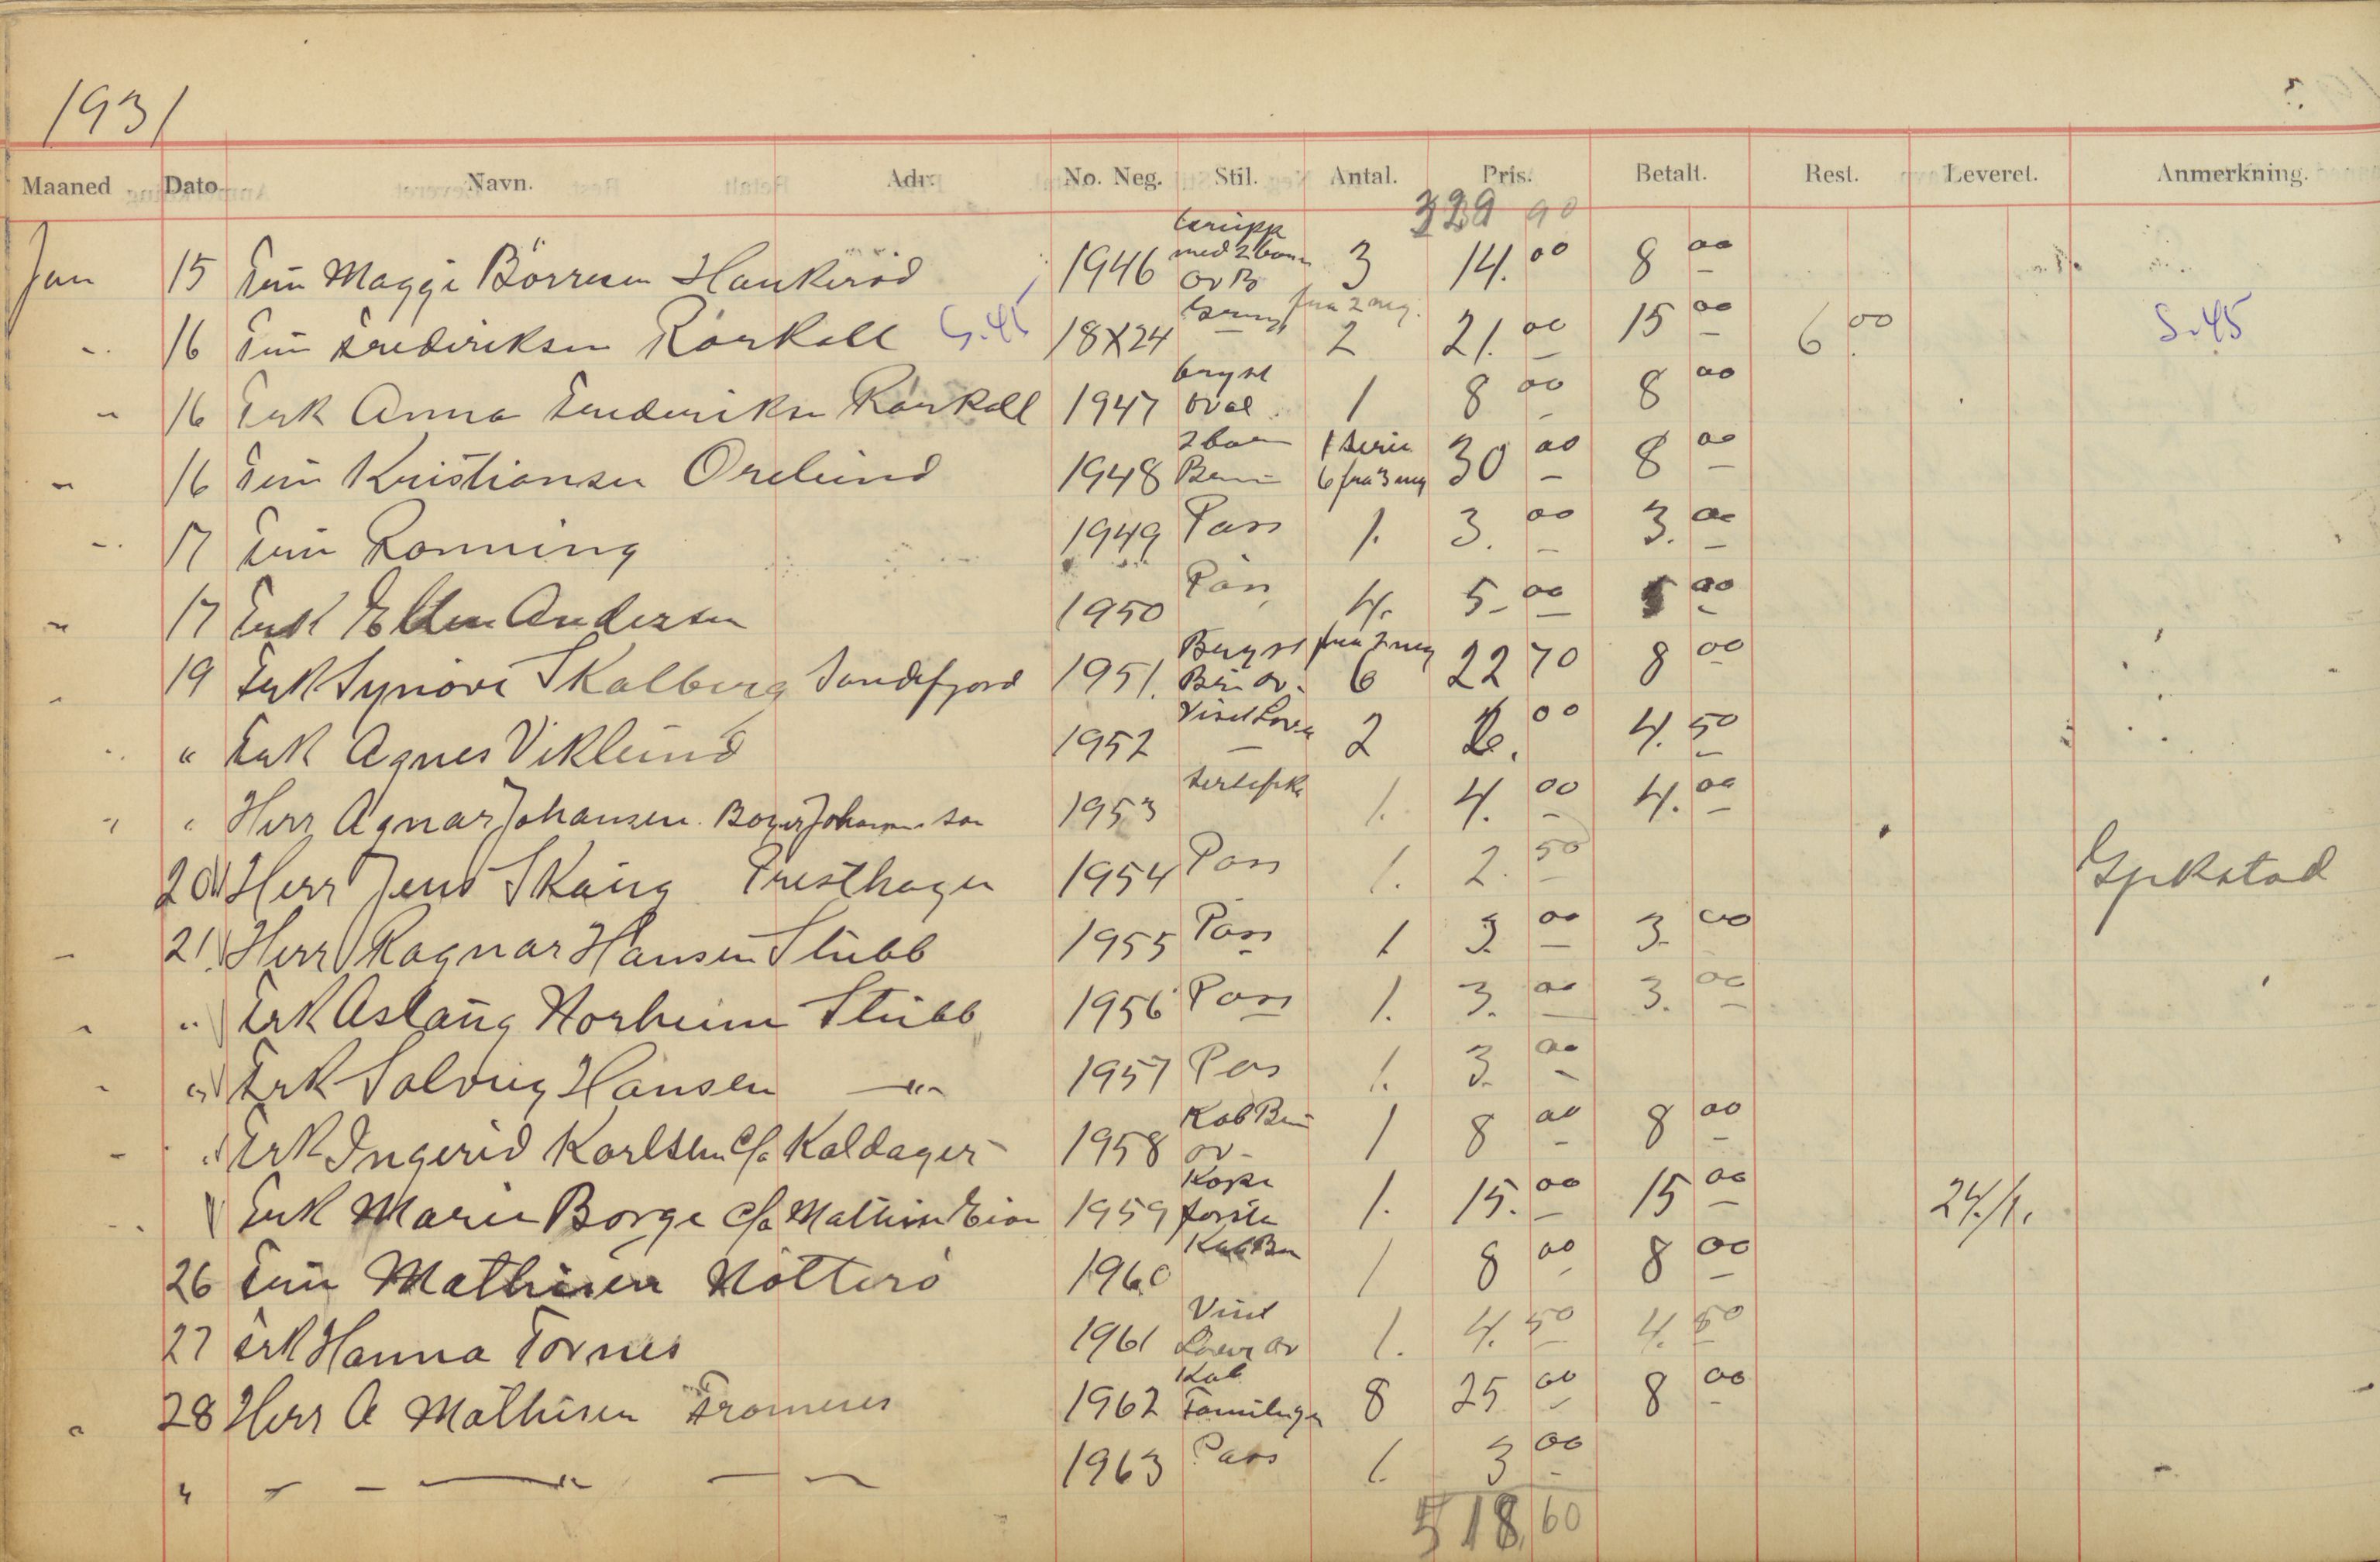 1931
Maaned Dato Navn. Adr. No. Neg. Stil. Antal. Pris. Betalt. Rest. Leveret. Anmerkning.
329 90
Jan 15 Magge Börresen Haukeröd 1946 med 2 barn 3 14.00 8 00
16 Frederiksen Rörkoll S.45 18X24 fra 2 neg. 2 21.00 15 00 6 00 S.45
16 Frk Anna Frederiksen Rörkoll 1947 bryst oval 1 8 00 8 00
16 Kristiansen Orelund 1948 2 barn 1 serie 6 fra 3 neg 30 00 8 00
17 Ronning 1949 Pass 1. 3. 00 3. 00
17 Frk Ellen Andersen 1950 Pass 4. 5- 00 5 00
19 Frk Synöve Skalberg Sandefjord 1951. Bryst fra 2 neg 6 22 70 8 00
" Frk Agnes Viklund 1952 2 00 4. 50
" Herr Agnar Johansen. 1953 1. 4. 00 4. 00
20 Herr Jens Skaug Presthagen 1954 Pass 1. 2. 50 Gjekstad
21 Herr Ragnar Hansen Stubb 1955 Pass 1 3. 00 3. 00
" Frk Aslaug Norheim Stubb 1956 Pass 1. 3. 00 3. 00
" Frk Solveig Hansen —"— 1957 Pas 1. 3. 00
" Frk Ingerid Karlsen c/o Kaldager 1958 Kab ov- 1 8 00 8 00
" Frk Marie Borge c/o Mathisen 1959 Kopi 1. 15. 00 15 00 24/1.
26 Mathisen Nötterö 1960 Kab 1 8 00 8 00
27 Frk Hanna Tornes 1961 Visit ov 1. 4. 50 4. 50
28 Herr A Mathisen Framnes 1962 Kab 8 25 00 8 00
" — — — — — 1963 Pass 1. 3 00
518,60